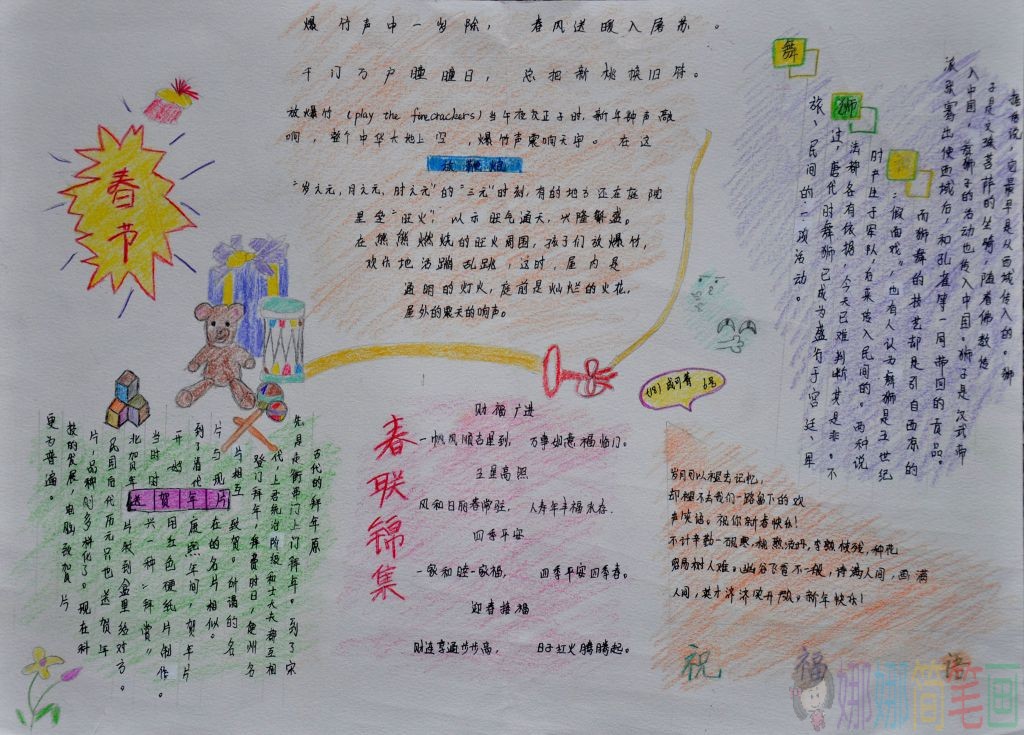 爆竹声中一岁除，春风送暖入屠苏。
千门万户曈曈日，总把新桃换旧符。
放爆竹 (play the firecrackers) 当午夜交正子时，新年钟声敲
响，整个中华大地上空，爆竹声震响天宇。在这
放鞭炮
"岁之元，月之元，时之元"的"三元"时刻，有的地方还在庭院
里垒"旺火"，以示旺气通天，兴隆繁盛。
在熊熊燃烧的旺火周围，孩子们放爆竹，
欢乐地活蹦乱跳，这时，屋内是
通明的灯火，庭前是灿烂的火花，
屋外的震天的响声。
春节
舞
狮
据传说，它最早是从西域传入的。狮
子是文殊菩萨的坐骑，随着佛教传
入中国，舞狮子的活动也传入中国。狮子是汉武帝
派张骞出使西域后，和孔雀等一同带回的贡品。
而狮舞的技艺却是引自西凉的
"假面戏"，也有人认为舞狮是五世纪
时产生于军队，后来传入民间的。两种说
法都各有依据，今天已难判断其是非。不
过，唐代时舞狮已成为盛行于宫廷、军
旅、民间的一项活动。
春联锦集
财福广进
一帆风顺吉星到，万事如意福临门。
玉星高照
风和日丽春常驻，人寿年丰福永存。
四季平安
一家和睦一家福，四季平安四季春。
迎春接福
财连亨通步步高，日子红火腾腾起。
送贺年片
古代的拜年原
先是走街串门上门拜年。到了宋
代，上层统治阶级和士大夫都互相
登门拜年，耗费时日，便用名
片相互致贺。所谓的名
片与现在的名片相似。
到了清代康熙年间，贺年片
开始用红色硬纸片制作。
当时时兴一种"拜盒"，
北贺年片放到盒里给对方。
民国后代历元旦也送贺年
片，品种则多样化了。现在科
技的发展，电脑致贺片
更为普遍。
岁月可以褪去记忆，
却褪不去我们一路留下的欢
声笑语。祝你新春快乐！
人间，英才济济笑开颜。新年快乐！
祝福语
娜娜简笔画